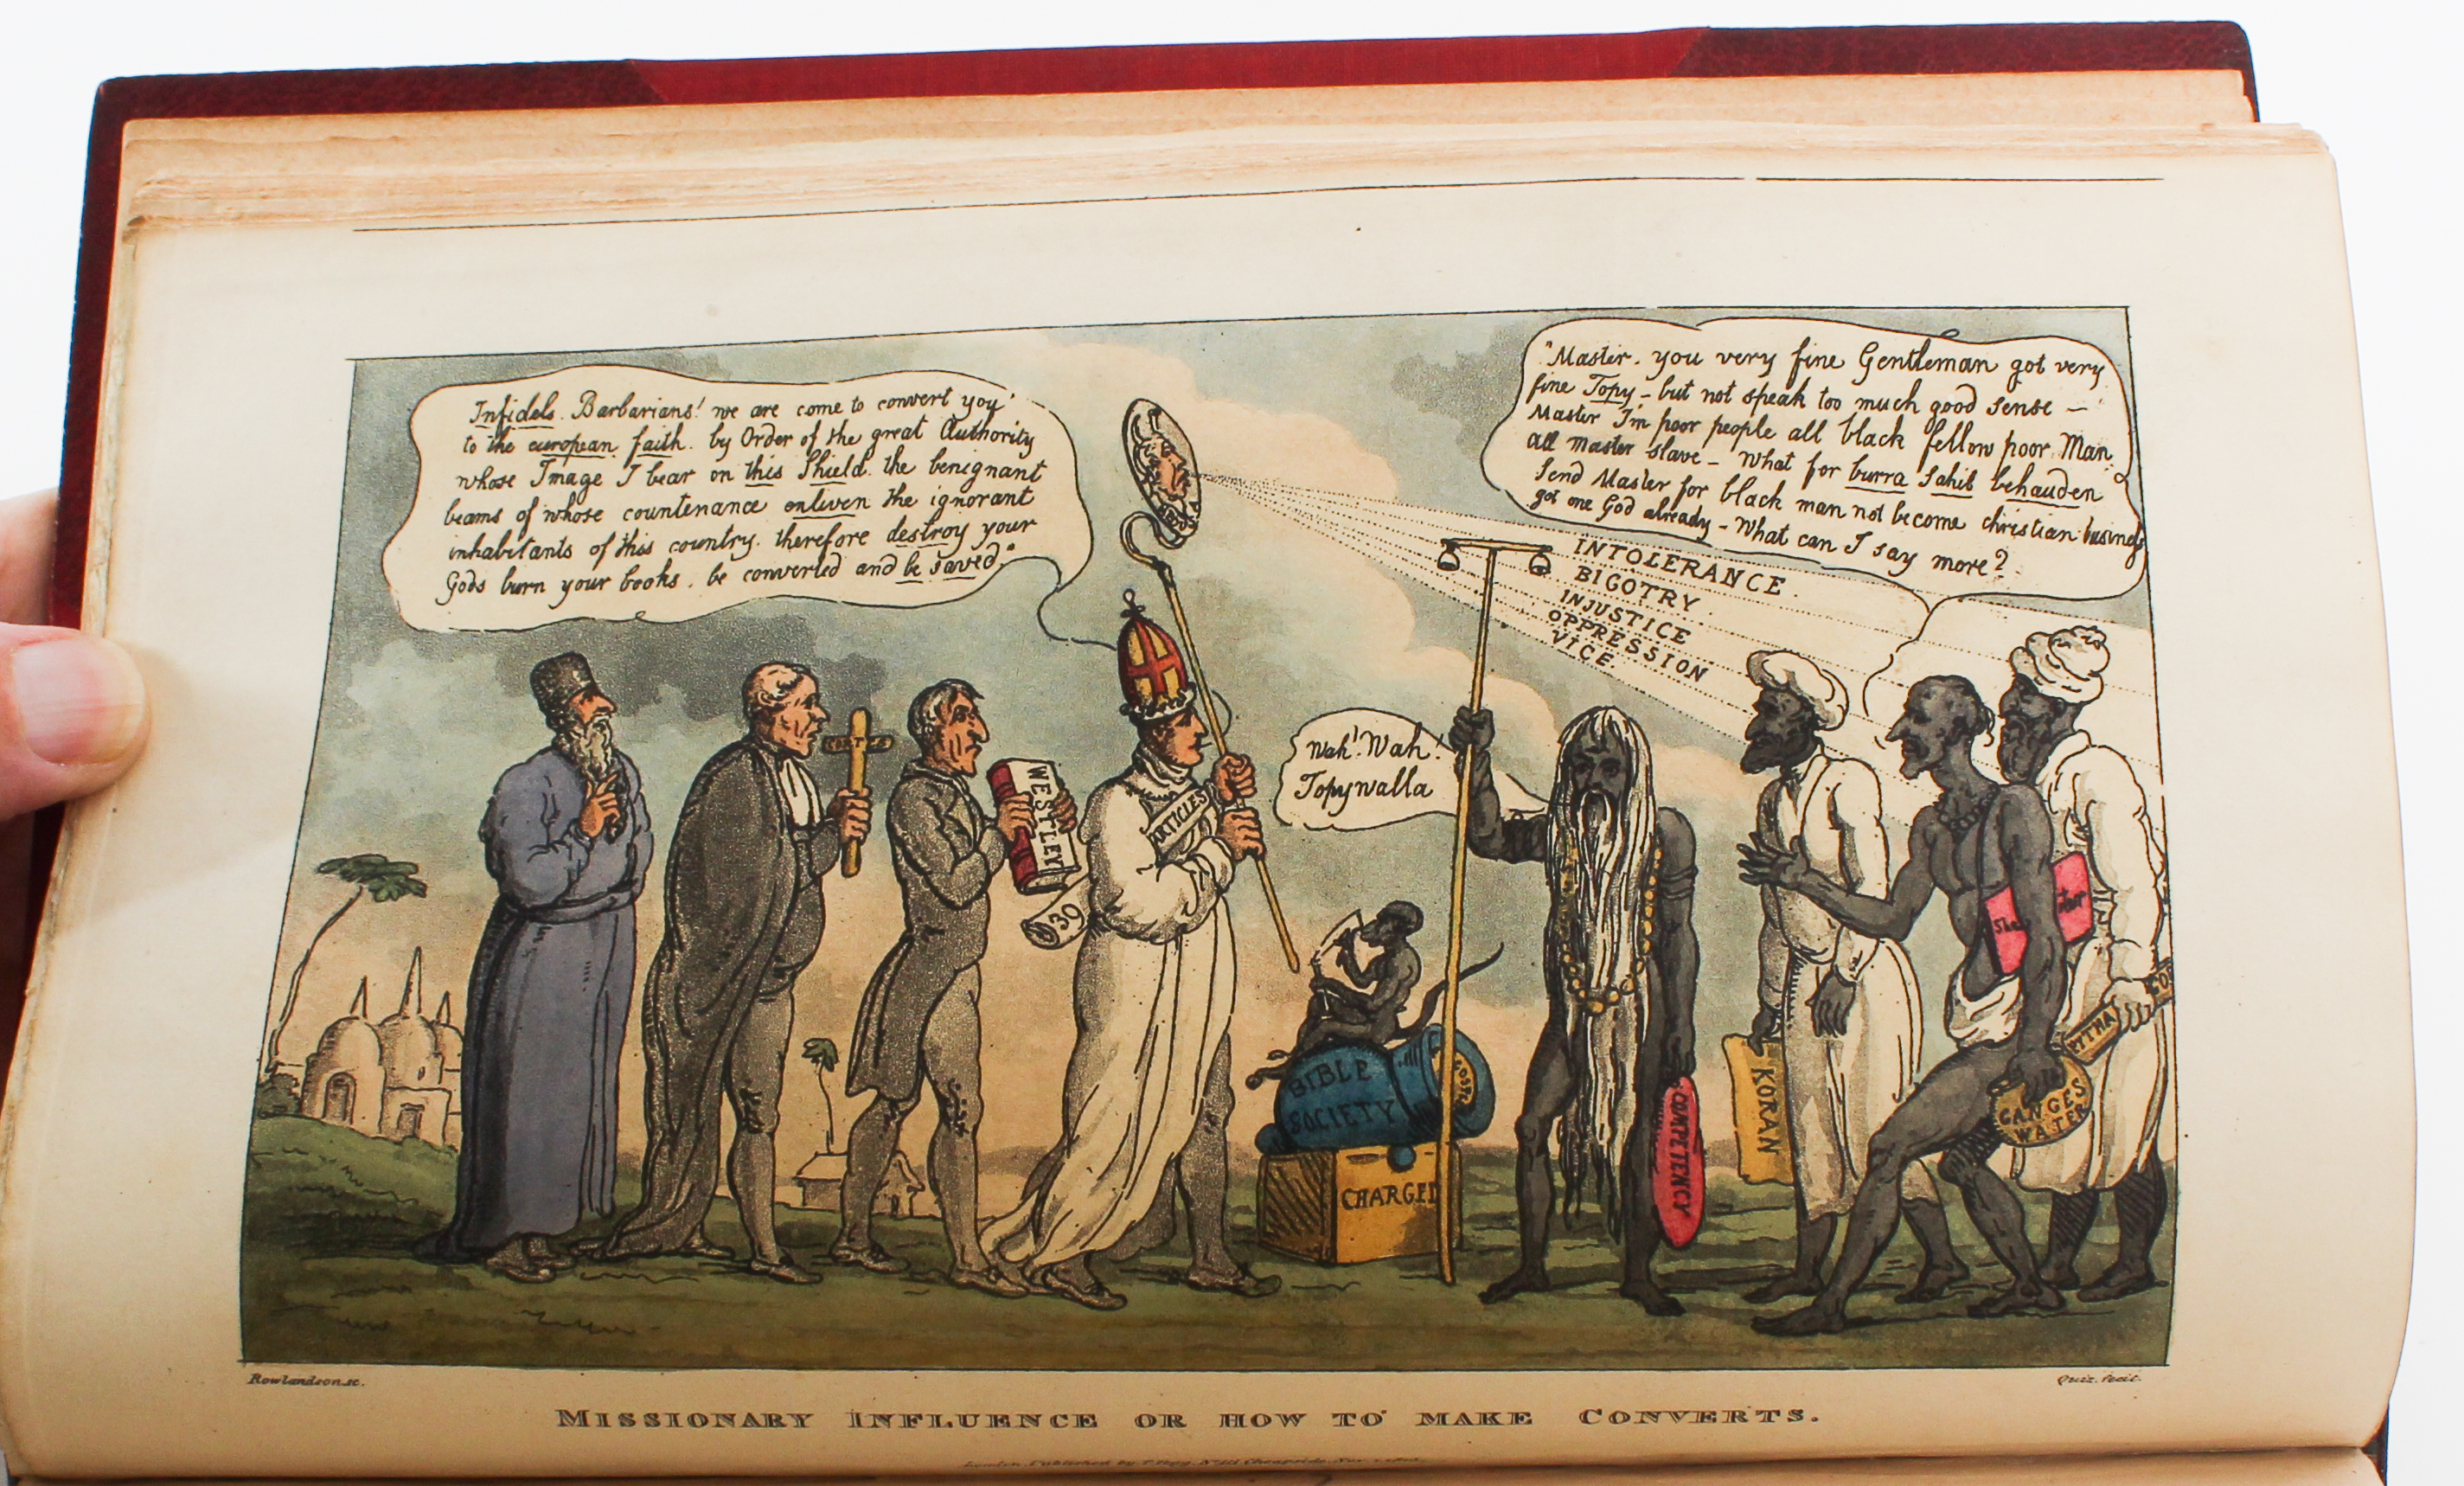 Infidels. Barbarians! we are come to convert you
to the european faith. by Order of the great Authority
whose Image I bear on this Shield. the benignant
beams of whose countenance enliven the ignorant
inhabitants of this country. therefore destroy your
Gods burn your books. be converted and be saved."
"Master. you very fine Gentleman got very
fine Topy - but not speak too much good sense -
Master I'm poor people all black fellow poor Man
all master slave - What for burra Sahib behauden
send Master for black man not become christian business
got one God already - What can I say more?
INTOLERANCE.
BIGOTRY.
INJUSTICE
OPPRESSION
VICE.
Wah! Wah!
Topywalla
WESTLEY
ARTICLES
39
BIBLE
SOCIETY
GOSPEL
CHARGED
COMPETENCY
KORAN
GANGES
WATER
Rowlandson sc.
Quiz. fecit.
MISSIONARY INFLUENCE OR HOW TO MAKE CONVERTS.
London. Published by T. Tegg. No 111 Cheapside